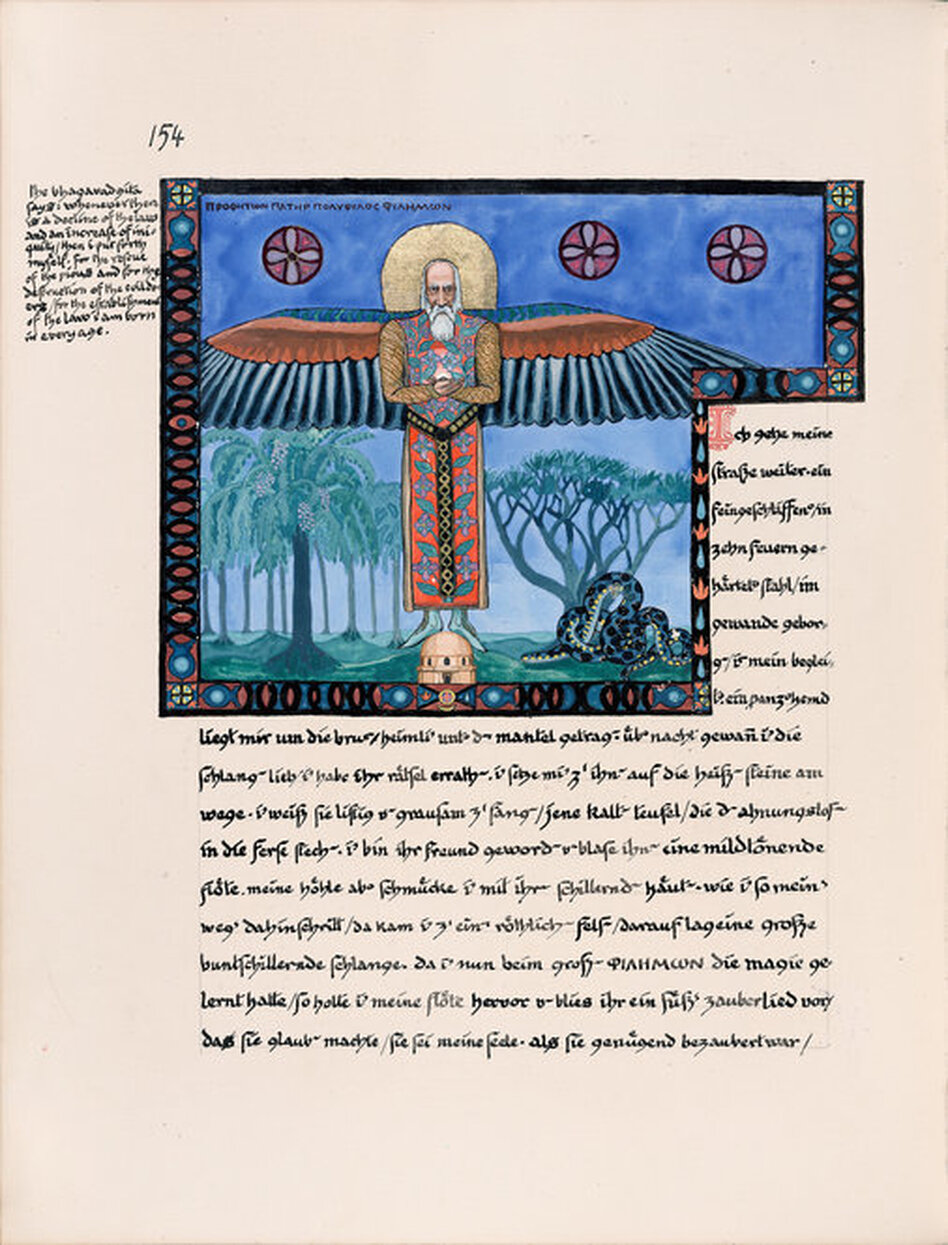 154
the bhagavadgita
says: whenever there
is a decline of the law
and an increase of ini-
quity / then i put forth
myself. for the rescue
of the pious and for the
destruction of the evildo-
ers / for the establishment
of the law i am born
in every age.
ΠΡΟΦΗΤΩΝ ΠΑΤΗΡ ΠΟΛΥΦΙΛΟΣ ΦΙΛΗΜΩΝ
Ich gehe meine
straße weiter. ein
feingeschliffen/in
zehn feuern ge-
härtet stahl/im
gewande gebor-
g/i mein beglei-
t. ein panzhemd
liegt mir um die brust/heimli unt d mantel getrag. üb nacht gewan̄ i die
schlang lieb i habe ihr rätsel errath. i setze mi z' ihn auf die heiß steine am
wege. i weiß sie listig u grausam z' fang/jene kalt teufel/die d ahnungslos
in die ferse stech. i bin ihr freund geword u blase ihn eine mildtönende
flöte. meine höhle ab schmücke i mit ihr schillernd häut. wie i so mein
weg dahinschritt/da kam i z' ein röthlich fels/darauf lag eine große
buntschillernde schlange. da i nun beim groß ΦΙΛΗΜΩΝ die magie ge-
lernt hatte/so holte i meine flöte hervor u blies ihr ein süß zauberlied vor/
das sie glaub machte/sie sei meine seele. als sie genügend bezaubert war/